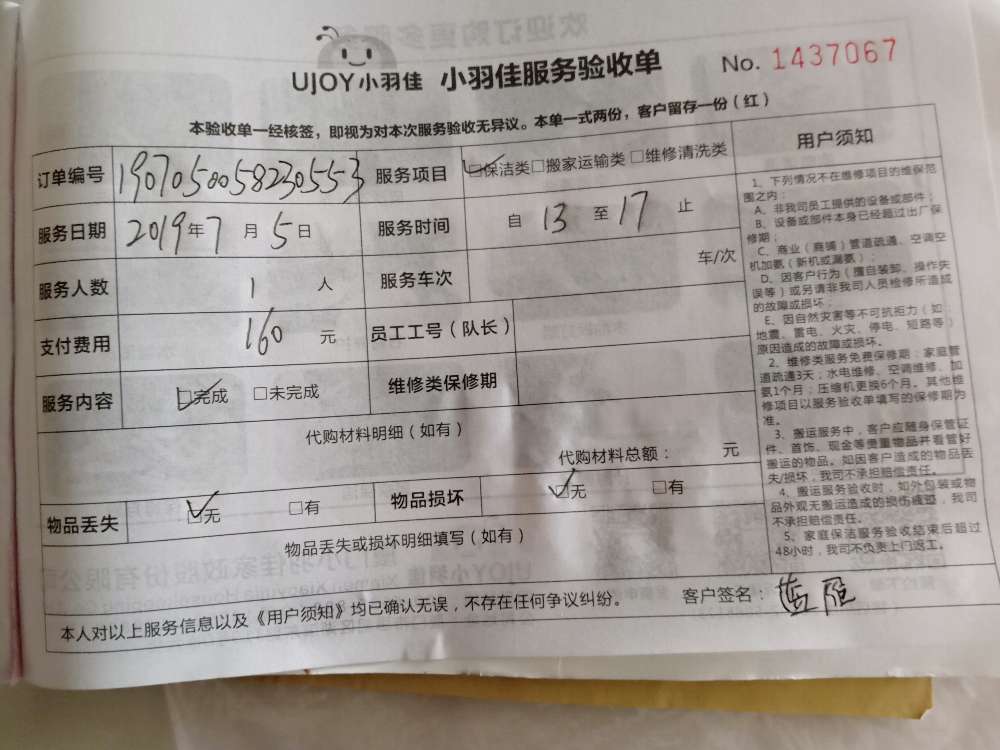 UJOY小羽佳 小羽佳服务验收单 No. 1437067
本验收单一经核签，即视为对本次服务验收无异议。本单一式两份，客户留存一份（红）
订单编号 190705005823055 3 服务项目 ☑保洁类□搬家运输类□维修清洗类
服务日期 2019年7月5日 服务时间 自 13 至 17 止
服务人数 1 人 服务车次 车/次
支付费用 160 元 员工工号（队长）
服务内容 ☑完成 □未完成 维修类保修期
代购材料明细（如有）
代购材料总额： 元
物品丢失 ☑无 □有 物品损坏 ☑无 □有
物品丢失或损坏明细填写（如有）
本人对以上服务信息以及《用户须知》均已确认无误，不存在任何争议纠纷。 客户签名：
用户须知
1、下列情况不在维修项目的维保范
围之内：
A、非我司员工提供的设备或部件；
B、设备或部件本身已经超过出厂保
修期；
C、商业（商铺）管道疏通、空调空
机加氨（新机或漏氨）；
D、因客户行为（擅自装卸、操作失
误等）或另请非我司人员检修所造成
的故障或损坏；
E、因自然灾害等不可抗拒力（如：
地震、雷电、火灾、停电、短路等）
原因造成的故障或损坏。
2、维修类服务免费保修期：家庭管
道疏通3天；水电维修、空调维修、加
氨1个月；压缩机更换6个月。其他维
修项目以服务验收单填写的保修期为
准。
3、搬运服务中，客户应随身保管证
件、首饰、现金等贵重物品并看管好
搬运的物品。如因客户造成的物品丢
失/损坏，我司不承担赔偿责任。
4、搬运服务验收时，如外包装或物
品外观无搬运造成的损伤痕迹，我司
不承担赔偿责任。
5、家庭保洁服务验收结束后超过
48小时，我司不负责上门返工。